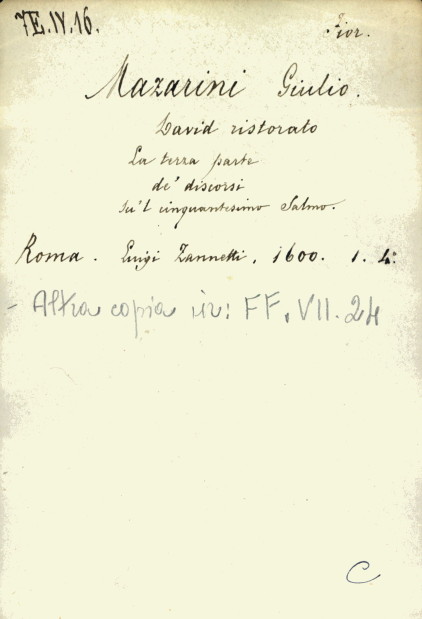 7E.IV.16.
Fior.
Mazarini Giulio.
David ristorato
La terza parte
de' discorsi
su'l cinquantesimo Salmo.
Roma. Luigi Zannetti, 1600. 1. 4:
- Altra copia in: FF. VII. 24
C